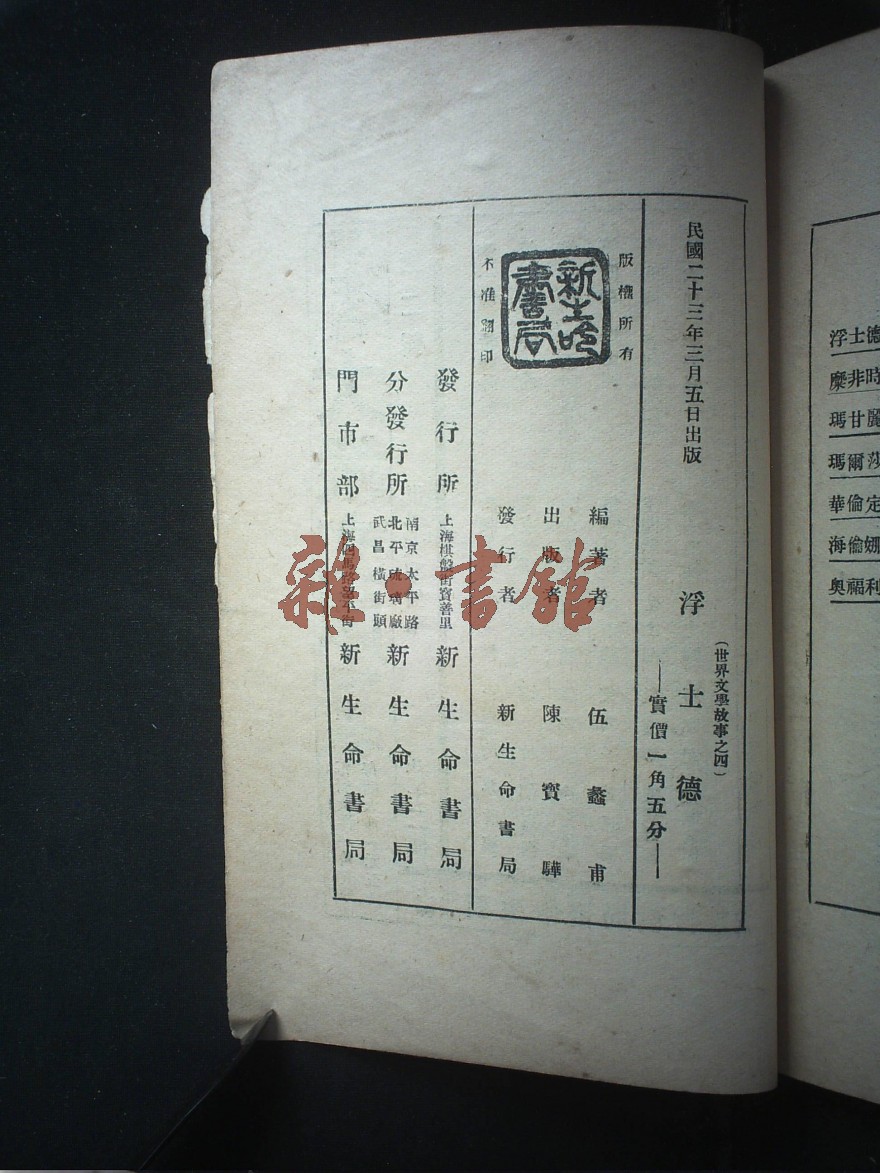 民國二十三年三月五日出版
(世界文學故事之四)
浮士德
——實價一角五分——
版權所有
新生命書局
不准翻印
編著者 伍蠡甫
出版者 陳寶驊
發行者 新生命書局
發行所 上海棋盤街寶善里 新生命書局
分發行所 南京太平路 北平琉璃廠 武昌橫街頭 新生命書局
門市部 上海四馬路望平街 新生命書局
雜·書館
浮士德
糜非時
瑪甘麗
瑪爾莎
華倫定
海倫娜
奧福利